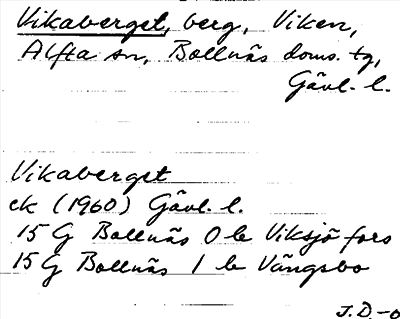 Vikaberget, berg, Viken,
Alfta sn, Bollnäs doms. tg,
Gävl. l.
Vikaberget
ek (1960) Gävl. l.
15 G Bollnäs 0 b Viksjöfors
15 G Bollnäs 1 b Vängsbo
J.D-o